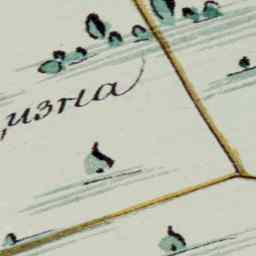 ,изна